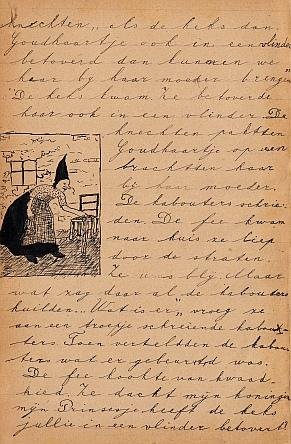 knechten, als de heks dan
Goudhaartje ook in een vlinder
betoverd dan kunnen we
haar bij haar moeder brengen"
De heks kwam. Ze betoverde
haar ook in een vlinder. De
knechten pakten
Goudhaartje op en
brachtten haar
bij haar moeder.
De kabouters schrei-
den. De fee kwam
naar huis ze liep
door de straten.
Ze was blij. Maar
wat zag daar al de kabouters
huilden. "Wat is er", vroeg ze
aan een troepje schreiende kabou-
ters. Toen verteldden de kabou-
ters wat er gebeurtd was.
De fee kookte van kwaad-
heid. Ze dacht mijn koningen
mijn Prinsesje heeft de heks
jullie in een vlinder betovert